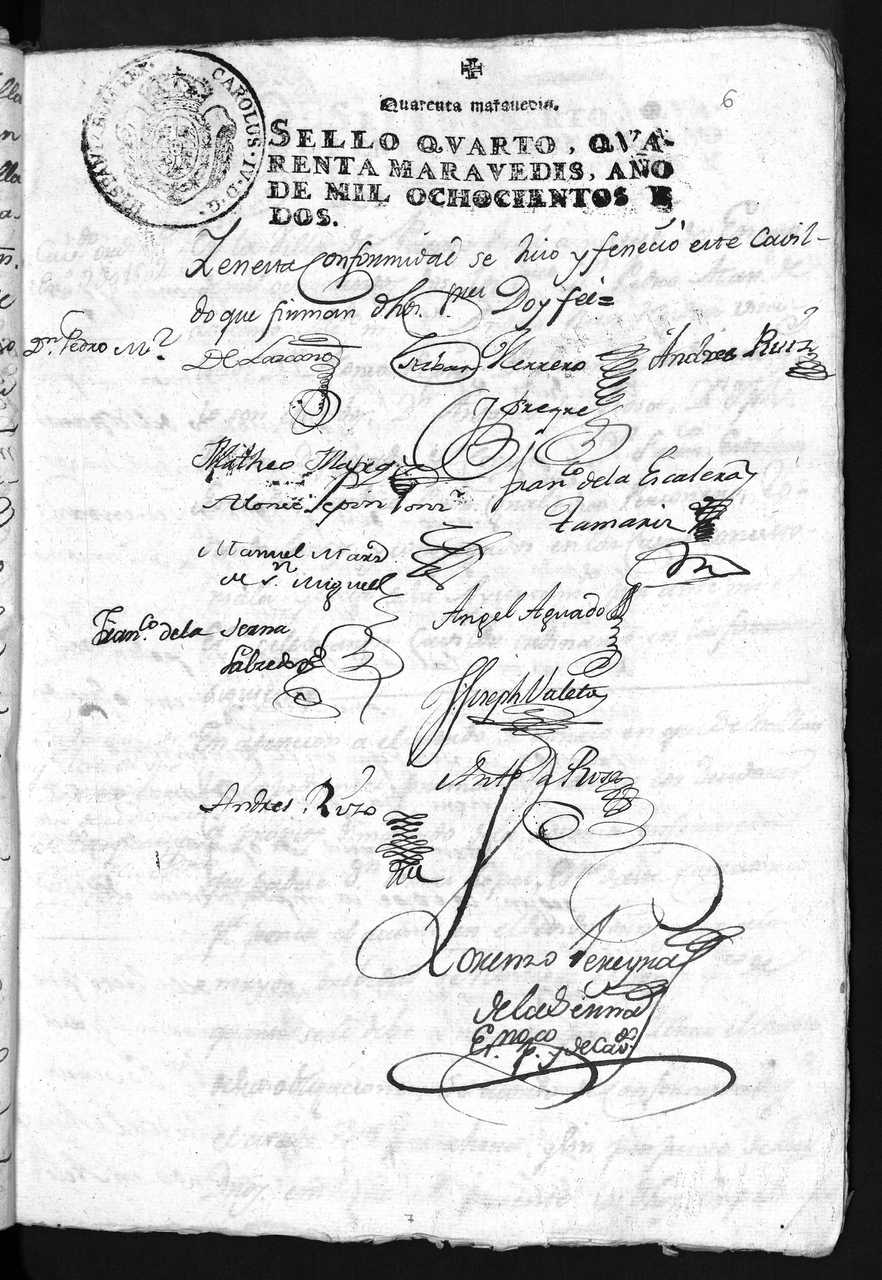 6
CAROLUS·IV·D·G·
Quarenta maravedis.
SELLO QVARTO, QVA-
RENTA MARAVEDIS, AÑO
DE MIL OCHOCIENTOS Y
DOS.
Y en esta Conformidad se hizo y fenecio este Cavil-
do que firman dhos. Doy fee=
Dn. Pedro Mª.
De Lazcano
Esteban Herrero
Andres Ruiz
Freyre
Matheo Marq
Franco. de la Escalera
Tamariz
Manuel Marn
Miguel
Angel Aguado
Franco. de la Serna
Joseph Valeta
Anto. la Rosa
Andres Rizo
Lorenzo Pereyra
de la Serna